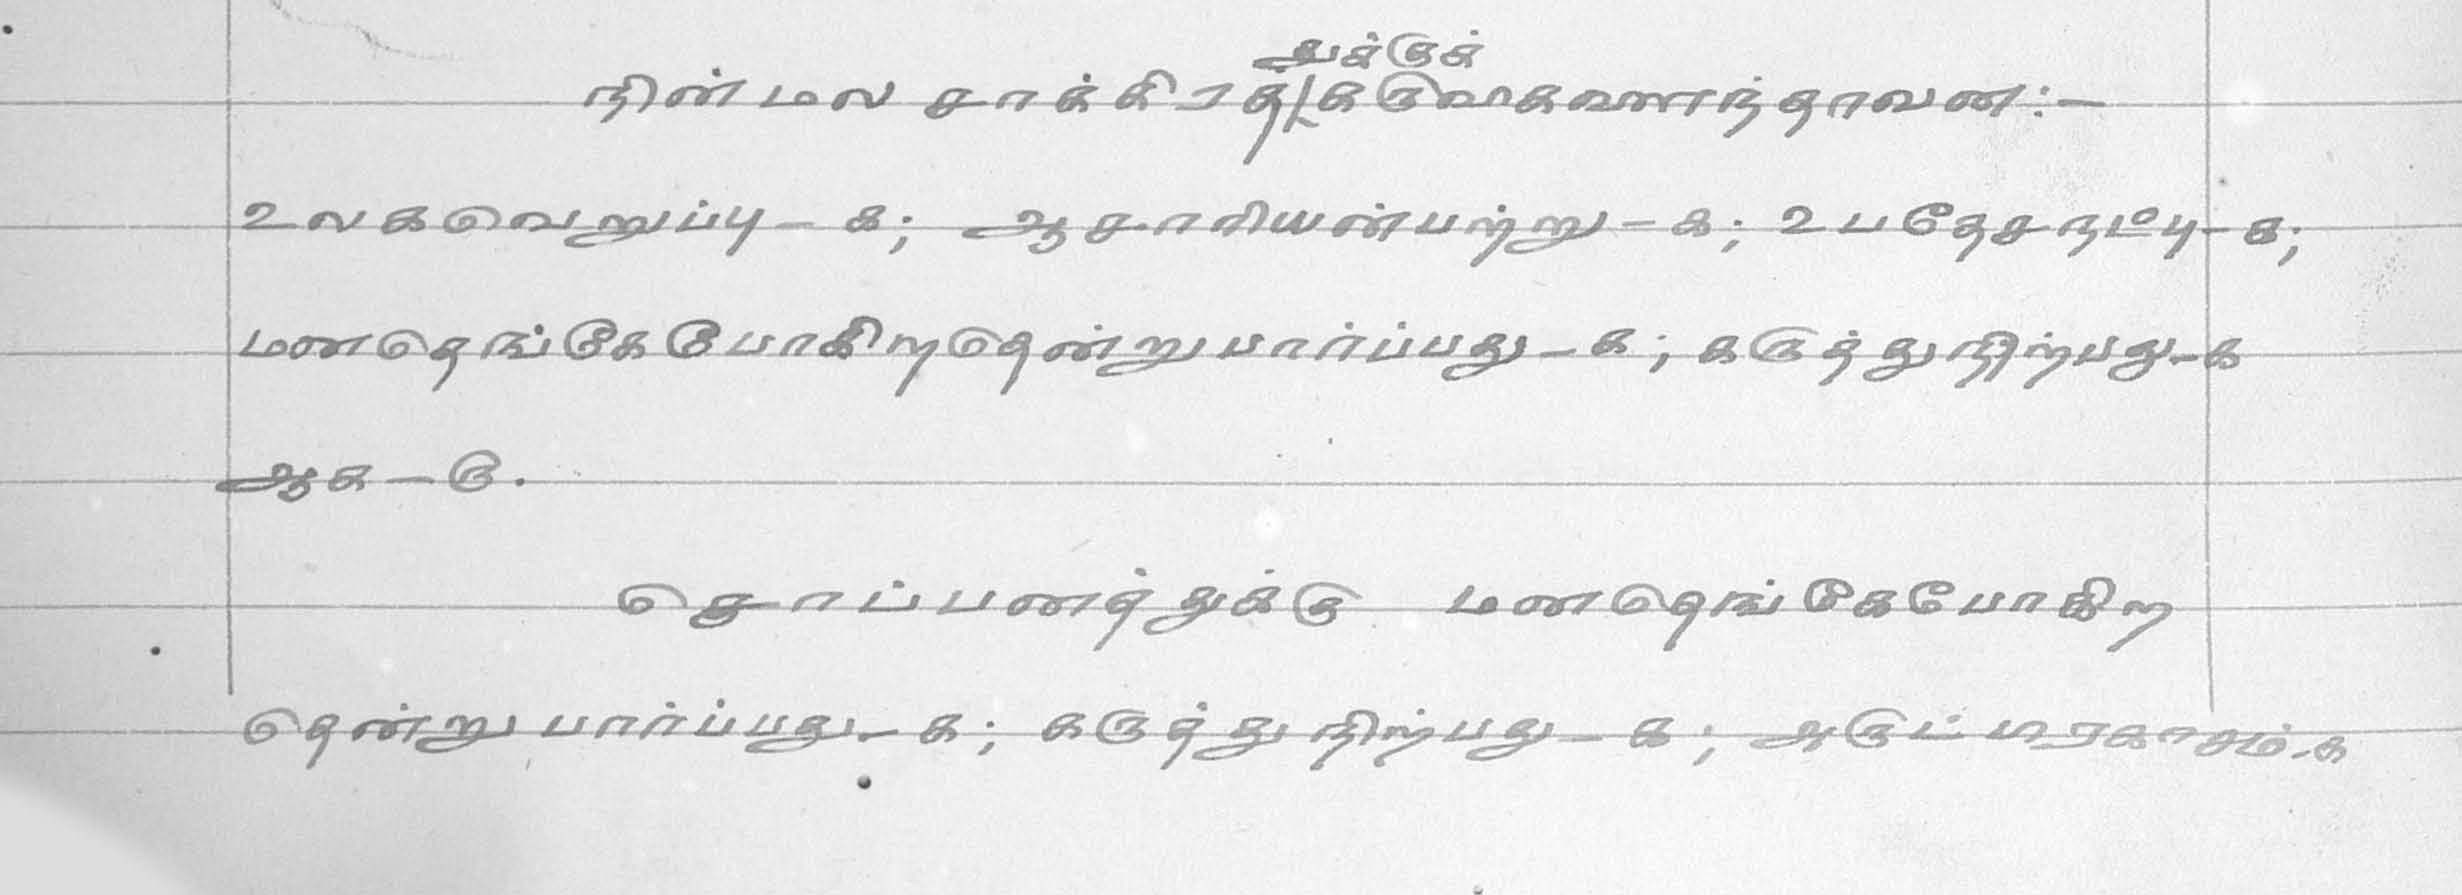 துக்குக்
நின்மல சாக்கிரத்/கருவிகளைந்தாவன:-
உலகவெறுப்பு-க; ஆசாரியன்பற்று-க; உபதேசநட்பு-க;
மனதெங்கேபோகிறதென்றுபார்ப்பது-க; கருத்துநிற்பது-க
ஆக-ரு.
சொப்பனத்துக்கு மனதெங்கேபோகிற
தென்றுபார்ப்பது-க; கருத்துநிற்பது-க; அருட்பிரகாசம்-க